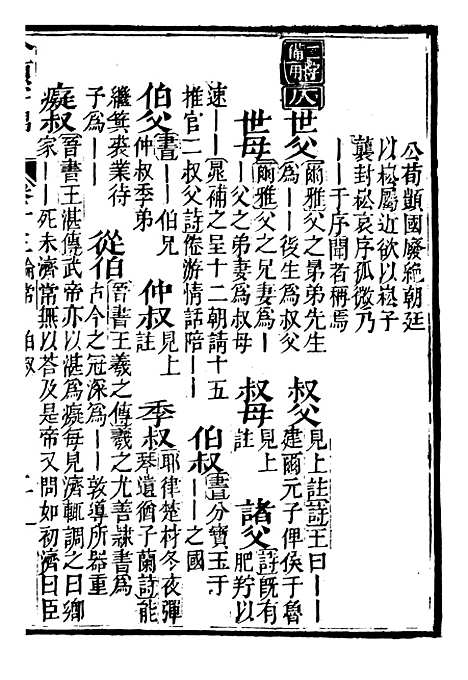 公荀顗國廢絕朝廷
以崧屬近欲以崧子
襲封崧哀序孤微乃
||于序聞者稱焉
二字備用 仄
世父 爾雅父之晜弟先生
爲||後生爲叔父
叔父 見上註詩王曰||
建爾元子俾侯于魯
世母 爾雅父之兄妻爲|
|父之弟妻爲叔母
叔母 見上
註
諸父 詩既有
肥羜以
速||晁補之呈十二朝請十五
推官二叔父詩倦游情話陪||
伯叔 書分寶玉于
||之國
伯父 書||伯兄
仲叔季弟
仲叔 見上
註
季叔 耶律楚材冬夜彈
琴遺猶子蘭詩能
繼箕裘業待
子爲||
從伯 晉書王羲之傳羲之尤善隷書爲
古今之冠深爲||敦導所器重
癡叔 晉書王湛傳武帝亦以湛爲癡每見濟輒調之曰卿
家||死未濟常無以荅及是帝又問如初濟曰臣
卷十三 倫常 伯叔